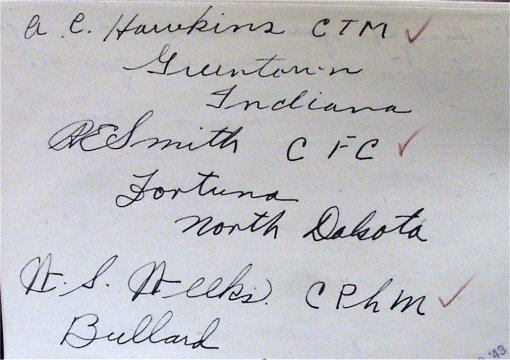 A. C. Hawkins CTM
Greentown
Indiana
RE Smith CFC
Fortuna
North Dakota
W. S. Weeks. CPhM
Bullard
'43